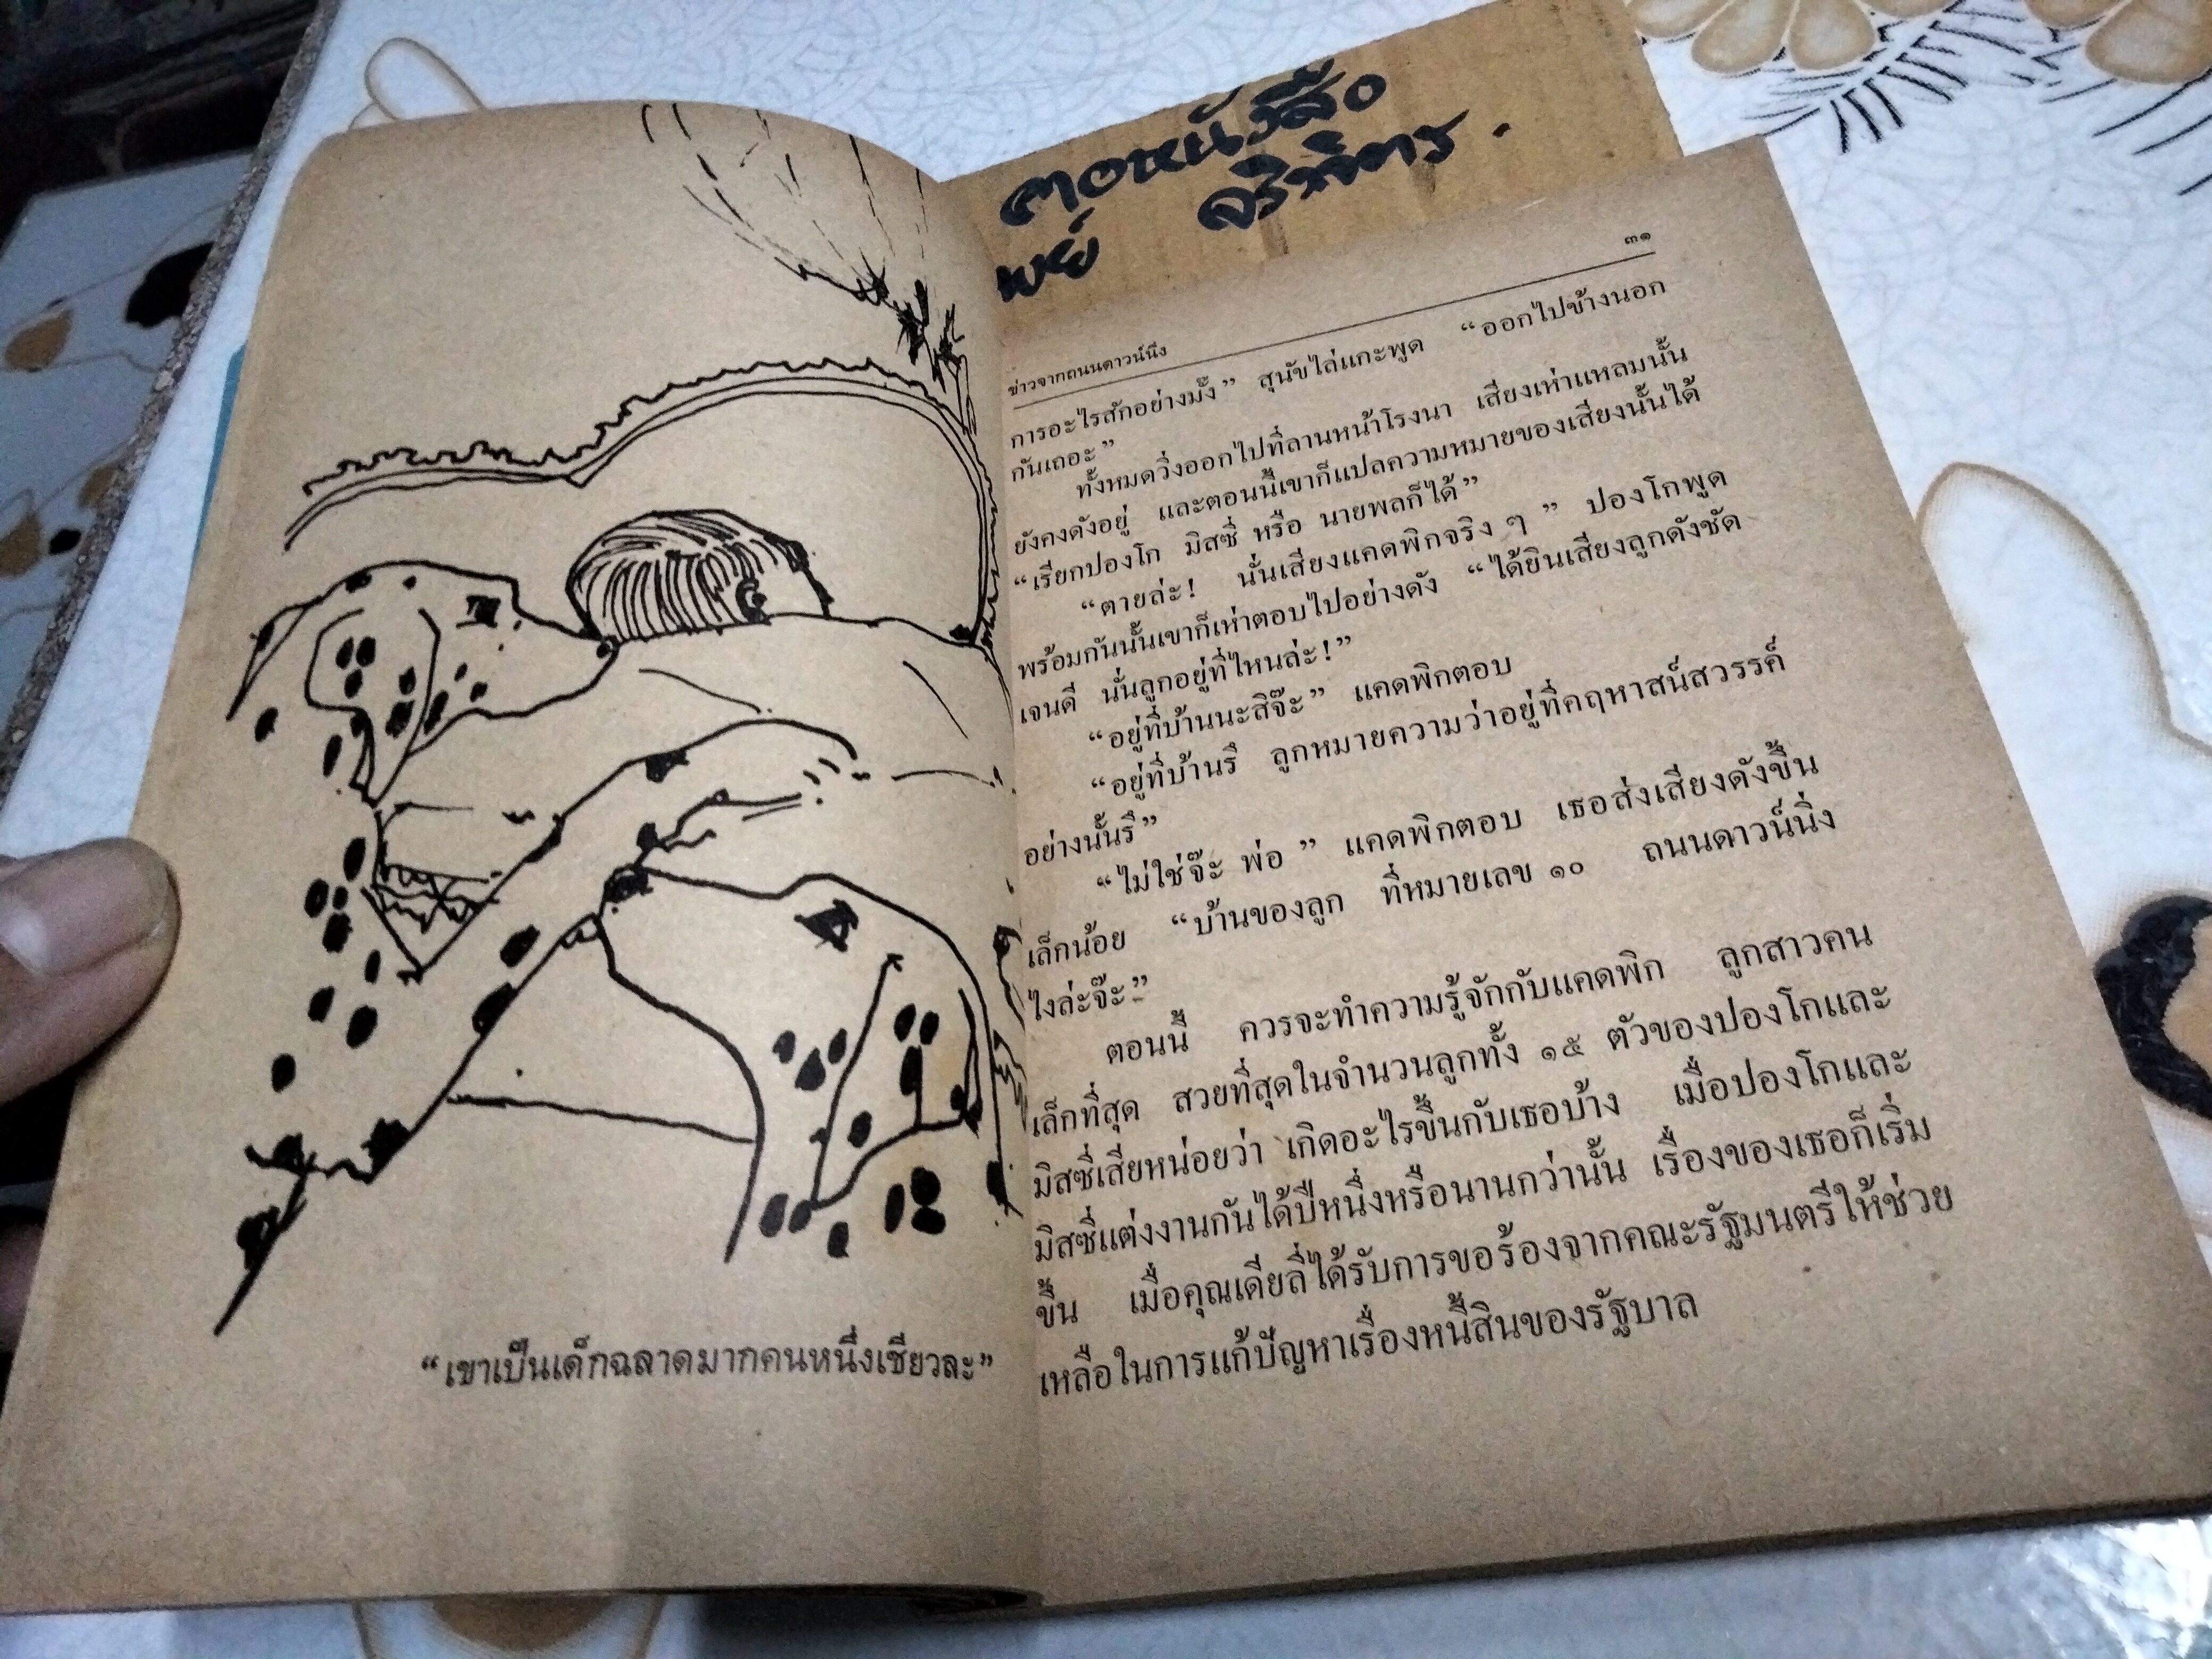 คอหนังสือ
พย์ จริพิตร.
๓๑
ข่าวจากถนนดาวน์นิ่ง
การอะไรสักอย่างมั้ง” สุนัขไล่แกะพูด “ออกไปข้างนอก
กันเถอะ”
ทั้งหมดวิ่งออกไปที่ลานหน้าโรงนา เสียงเห่าแหลมนั้น
ยังคงดังอยู่ และตอนนี้เขาก็แปลความหมายของเสียงนั้นได้
“เรียกปองโก มิสซี่ หรือ นายพลก็ได้”
“ตายล่ะ! นั่นเสียงแคดพิกจริง ๆ” ปองโกพูด
พร้อมกันนั้นเขาก็เห่าตอบไปอย่างดัง “ได้ยินเสียงลูกดังชัด
เจนดี นั่นลูกอยู่ที่ไหนล่ะ!”
“อยู่ที่บ้านนะสิจ๊ะ” แคดพิกตอบ
“อยู่ที่บ้านรึ ลูกหมายความว่าอยู่ที่คฤหาสน์สวรรค์
อย่างนั้นรึ”
“ไม่ใช่จ๊ะ พ่อ” แคดพิกตอบ เธอส่งเสียงดังขึ้น
เล็กน้อย “บ้านของลูก ที่หมายเลข ๑๐ ถนนดาวน์นิ่ง
ไงล่ะจ๊ะ”
ตอนนี้ ควรจะทำความรู้จักกับแคดพิก ลูกสาวคน
เล็กที่สุด สวยที่สุดในจำนวนลูกทั้ง ๑๕ ตัวของปองโกและ
มิสซี่เสียหน่อยว่า เกิดอะไรขึ้นกับเธอบ้าง เมื่อปองโกและ
มิสซี่แต่งงานกันได้ปีหนึ่งหรือนานกว่านั้น เรื่องของเธอก็เริ่ม
ขึ้น เมื่อคุณเดียลี่ได้รับการขอร้องจากคณะรัฐมนตรีให้ช่วย
เหลือในการแก้ปัญหาเรื่องหนี้สินของรัฐบาล
“เขาเป็นเด็กฉลาดมากคนหนึ่งเชียวละ”